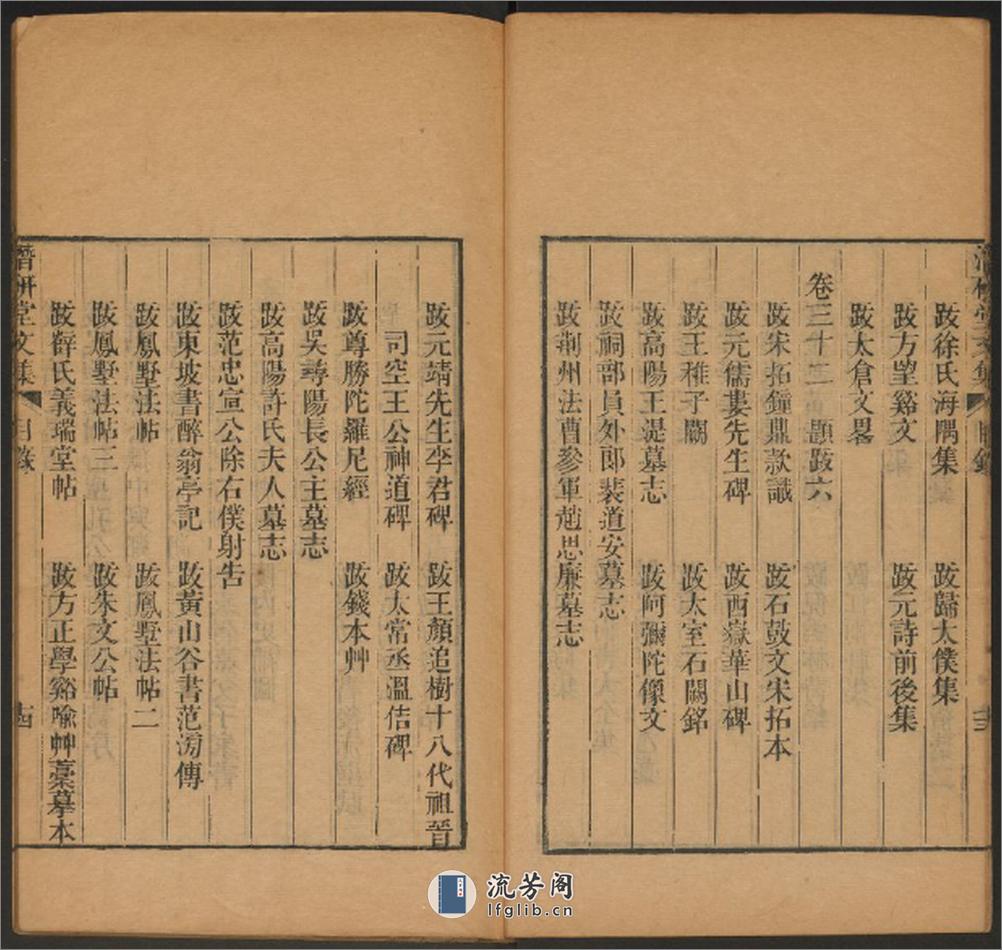 跋徐氏海隅集　跋歸太僕集
跋方望谿文　跋元詩前後集
跋太倉文畧
卷三十二　題跋六
跋宋拓鐘鼎款識　跋石鼓文宋拓本
跋元儒婁先生碑　跋西嶽華山碑
跋王稚子闕　跋太室石闕銘
跋高陽王湜墓志　跋阿彌陀像文
跋祠部員外郎裴道安墓志
跋荆州法曹參軍趙思廉墓志
跋元靖先生李君碑　跋王顏追樹十八代祖晉
司空王公神道碑　跋太常丞溫佶碑
跋尊勝陀羅尼經　跋錢本艸
跋吳尋陽長公主墓志
跋高陽許氏夫人墓志
跋范忠宣公除右僕射告
跋東坡書醉翁亭記　跋黃山谷書范滂傳
跋鳳墅法帖　跋鳳墅法帖二
跋鳳墅法帖三　跋朱文公帖
跋薛氏義瑞堂帖　跋方正學谿喻艸藁摹本
潛研堂文集　目錄　十四
流芳阁
lfglib.cn